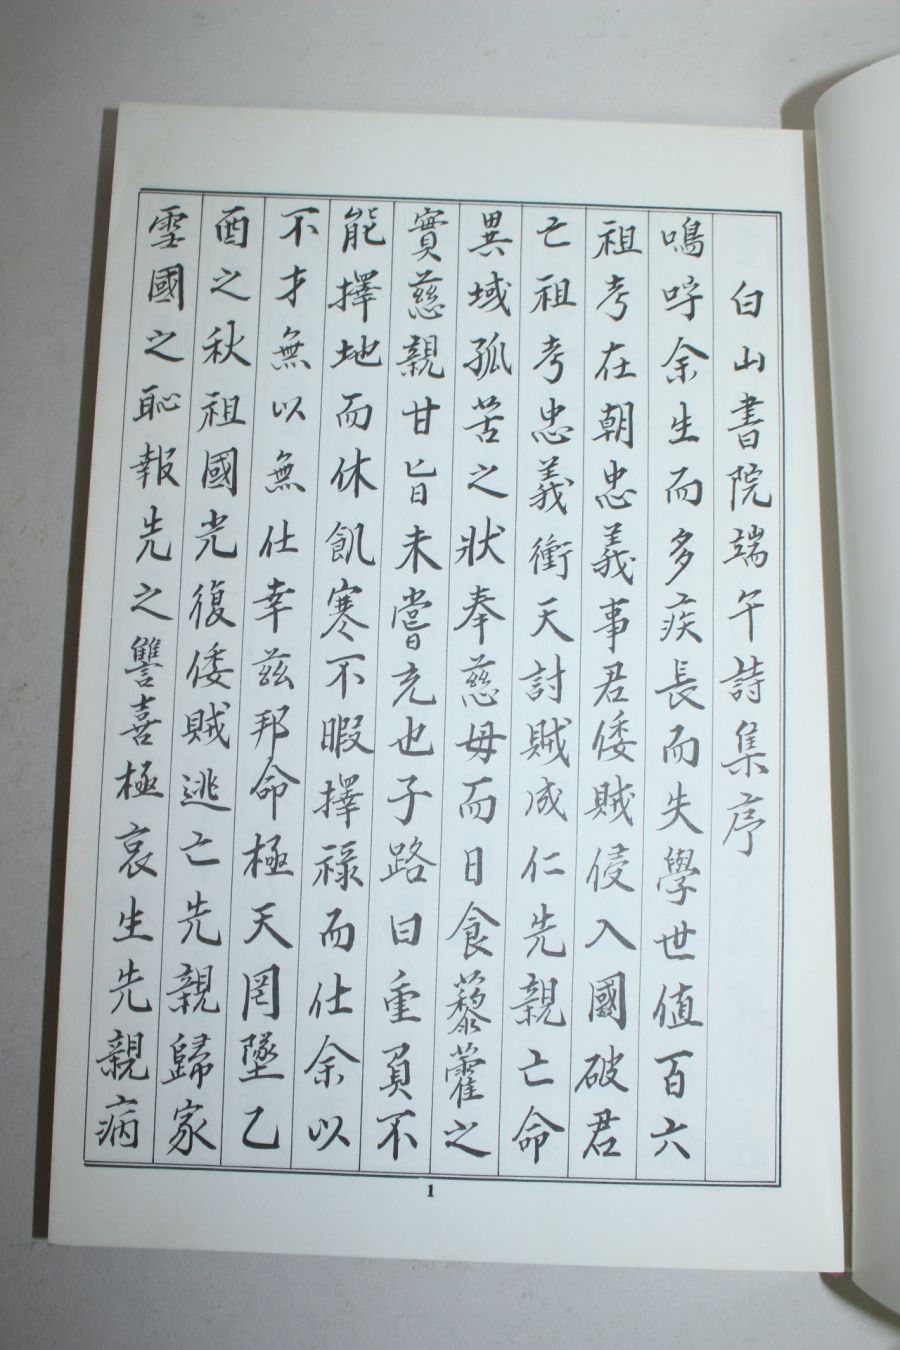 白山書院端午詩集序
嗚呼余生而多疾長而失學世值百六
祖考在朝忠義事君倭賊侵入國破君
亡祖考忠義衝天討賊成仁先親亡命
異域孤苦之狀奉慈母而日食藜藿之
實慈親甘旨未嘗充也子路曰重負不
能擇地而休飢寒不暇擇祿而仕余以
不才無以無仕幸茲邦命極天罔墜乙
酉之秋祖國光復倭賊逃亡先親歸家
雪國之恥報先之讐喜極哀生先親病
1